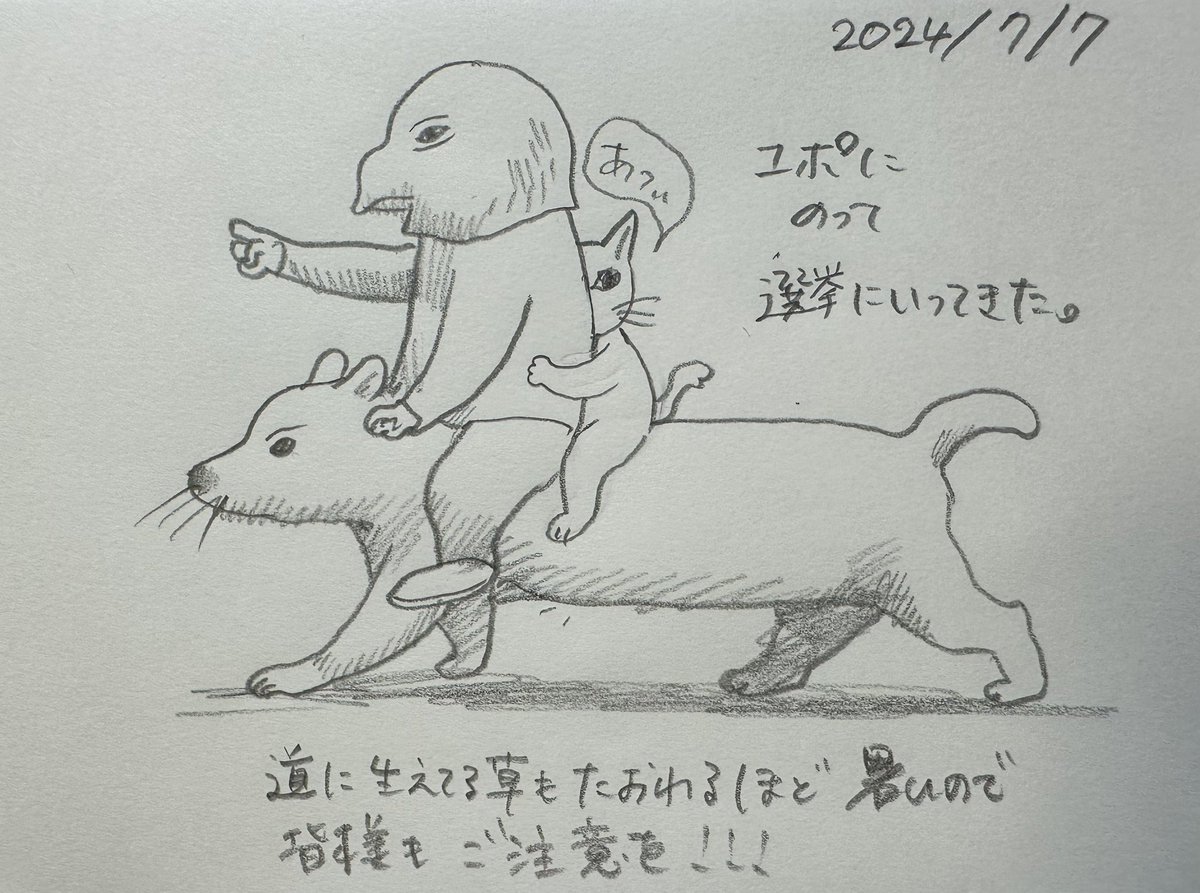 2024/7/7
ユポに
のって
選挙にいってきた。
あつい
道に生えてる草もたおれるほど 暑いので
皆様も ご注意を!!!